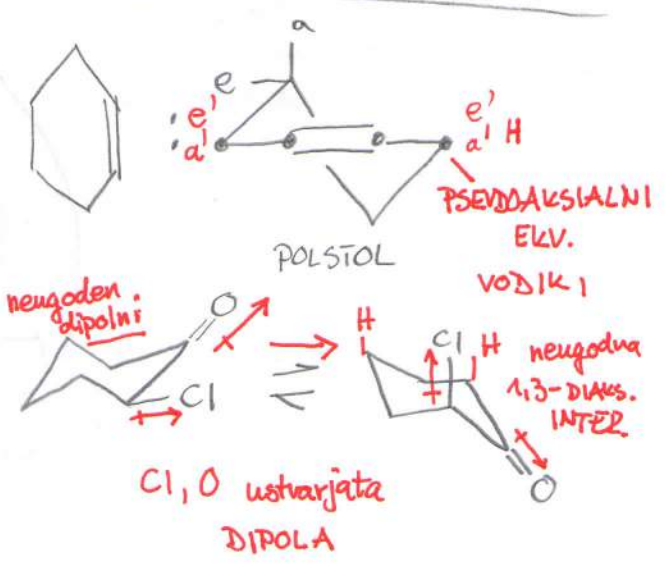 a
e
: e'
: a'
e'
a' H
PSEVDOAKSIALNI
EKV.
VODIKI
POLSTOL
neugoden
dipolni
O
Cl
H
Cl
H
neugodna
1,3-DIAKS.
INTER.
O
Cl, O ustvarjata
DIPOLA